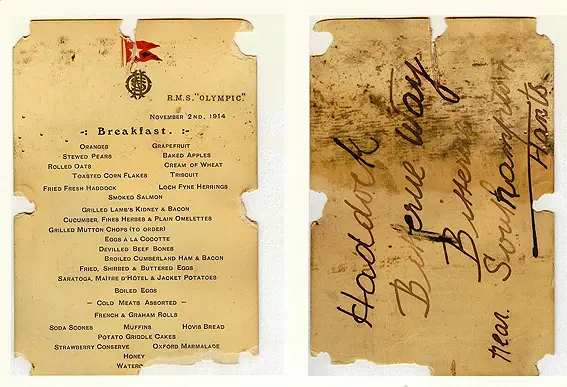 R.M.S. "OLYMPIC."
NOVEMBER 2ND, 1914
-: Breakfast. :-
ORANGES GRAPEFRUIT
STEWED PEARS BAKED APPLES
ROLLED OATS CREAM OF WHEAT
TOASTED CORN FLAKES TRISCUIT
FRIED FRESH HADDOCK LOCH FYNE HERRINGS
SMOKED SALMON
GRILLED LAMB'S KIDNEY & BACON
CUCUMBER, FINES HERBES & PLAIN OMELETTES
GRILLED MUTTON CHOPS (TO ORDER)
EGGS À LA COCOTTE
DEVILLED BEEF BONES
BROILED CUMBERLAND HAM & BACON
FRIED, SHIRRED & BUTTERED EGGS
SARATOGA, MAITRE D'HÔTEL & JACKET POTATOES
BOILED EGGS
— COLD MEATS ASSORTED —
FRENCH & GRAHAM ROLLS
SODA SCONES MUFFINS HOVIS BREAD
POTATO GRIDDLE CAKES
STRAWBERRY CONSERVE OXFORD MARMALADE
HONEY
Haddock
Bitterne Way
near. Southampton
Hants